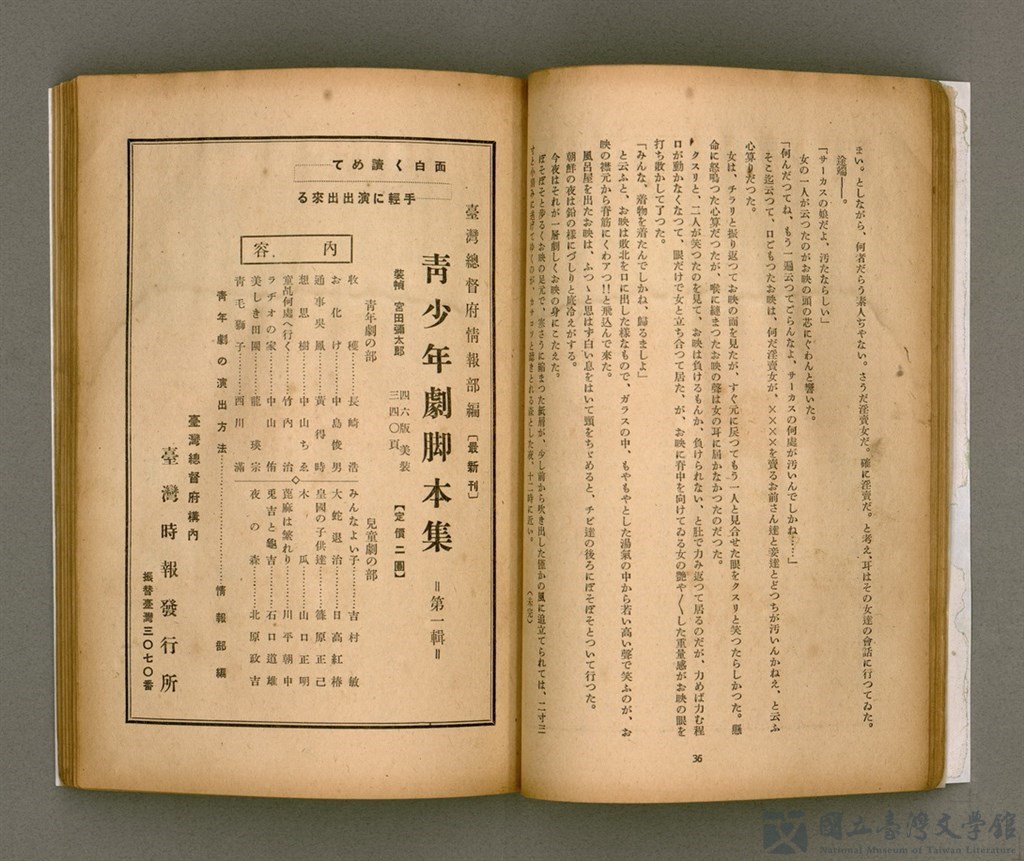 まい。としながら、何者だらう素人ぢやない。さうだ淫賣女だ。確に淫賣だ。と考え、耳はその女達の會話に行つてゐた。
途端――。
「サーカスの娘だよ、汚たならしい」
女の一人が云つたのがお映の頭の芯にぐわんと響いた。
「何んだつてね、もう一遍云つてごらんなよ、サーカスの何處が汚いんでしかね……」
そこ迄云つて、口ごもつたお映は、何だ淫賣女が、××××を賣るお前さん達と妾達とどつちが汚いんかねえ、と云ふ
心算りだつた。
女は、チラリと振り返つてお映の面を見たが、すぐ元に戻つてもう一人と見合せた眼をクスリと笑つたらしかつた。懸
命に怒鳴つた心算だつたが、喉に縺まつたお映の聲は女の耳に届かなかつたのだつた。
クスリと、二人が笑つたのを見て、お映は負けるもんか、負けられない、と肚で力み返つて居るのだが、力めば力む程
口が動かなくなつて、眼だけで女と立ち合つて居た、が、お映に脊中を向けてゐる女の艷や〳〵した重量感がお映の眼を
打ち敗かして了つた。
「みんな、着物を着たんでしかね、歸るましよ」
と云ふと、お映は敗北を口に出した樣なもので、ガラスの中、もやもやとした湯氣の中から若い高い聲で笑ふのが、お
映の襟元から脊筋にくわアつ!!と飛込んで來た。
風呂屋を出たお映は、ふつゝと思はず白い息をはいて頭をちゞめると、チビ達の後ろにぼそぼそとついて行つた。
朝鮮の夜は鉛の樣にづしりと底冷えがする。
今夜はそれが一層劇しくお映の身にこたえた。
ぼそぼそと歩るくお映の足元で、寒さうに縮まつた紙屑が、少し前から吹き出した僅かの風に追立てられては、二寸三
（未完）
36
面白く讀めて
手輕に演出出來る
臺灣總督府情報部編〔最新刊〕
青少年劇脚本集 =第一輯=
裝幀 宮田彌太郎
四六版美裝
三四〇頁
【定價二圓】
內容
青年劇の部
收穫……長崎浩
お化け……中島俊男
通事吳鳳……黃得時
想思樹……中山ちゑ
童乩何處へ行く……竹內治
ラヂオの家……中山侑
美しき田園……龍瑛宗
青毛獅子……西川滿
兒童劇の部
みんなよい子……吉村敏
大蛇退治……日高紅椿
皇國の子供達……篠原正己
木瓜……山口正明
蓖麻は繁れり……川平朝申
兎吉と龜吉……石口道雄
夜の森……北原政吉
青年劇の演出方法……情報部編
臺灣總督府構內
臺灣時報發行所
振替臺灣三〇七〇番
國立臺灣文學館
National Museum of Taiwan Literature